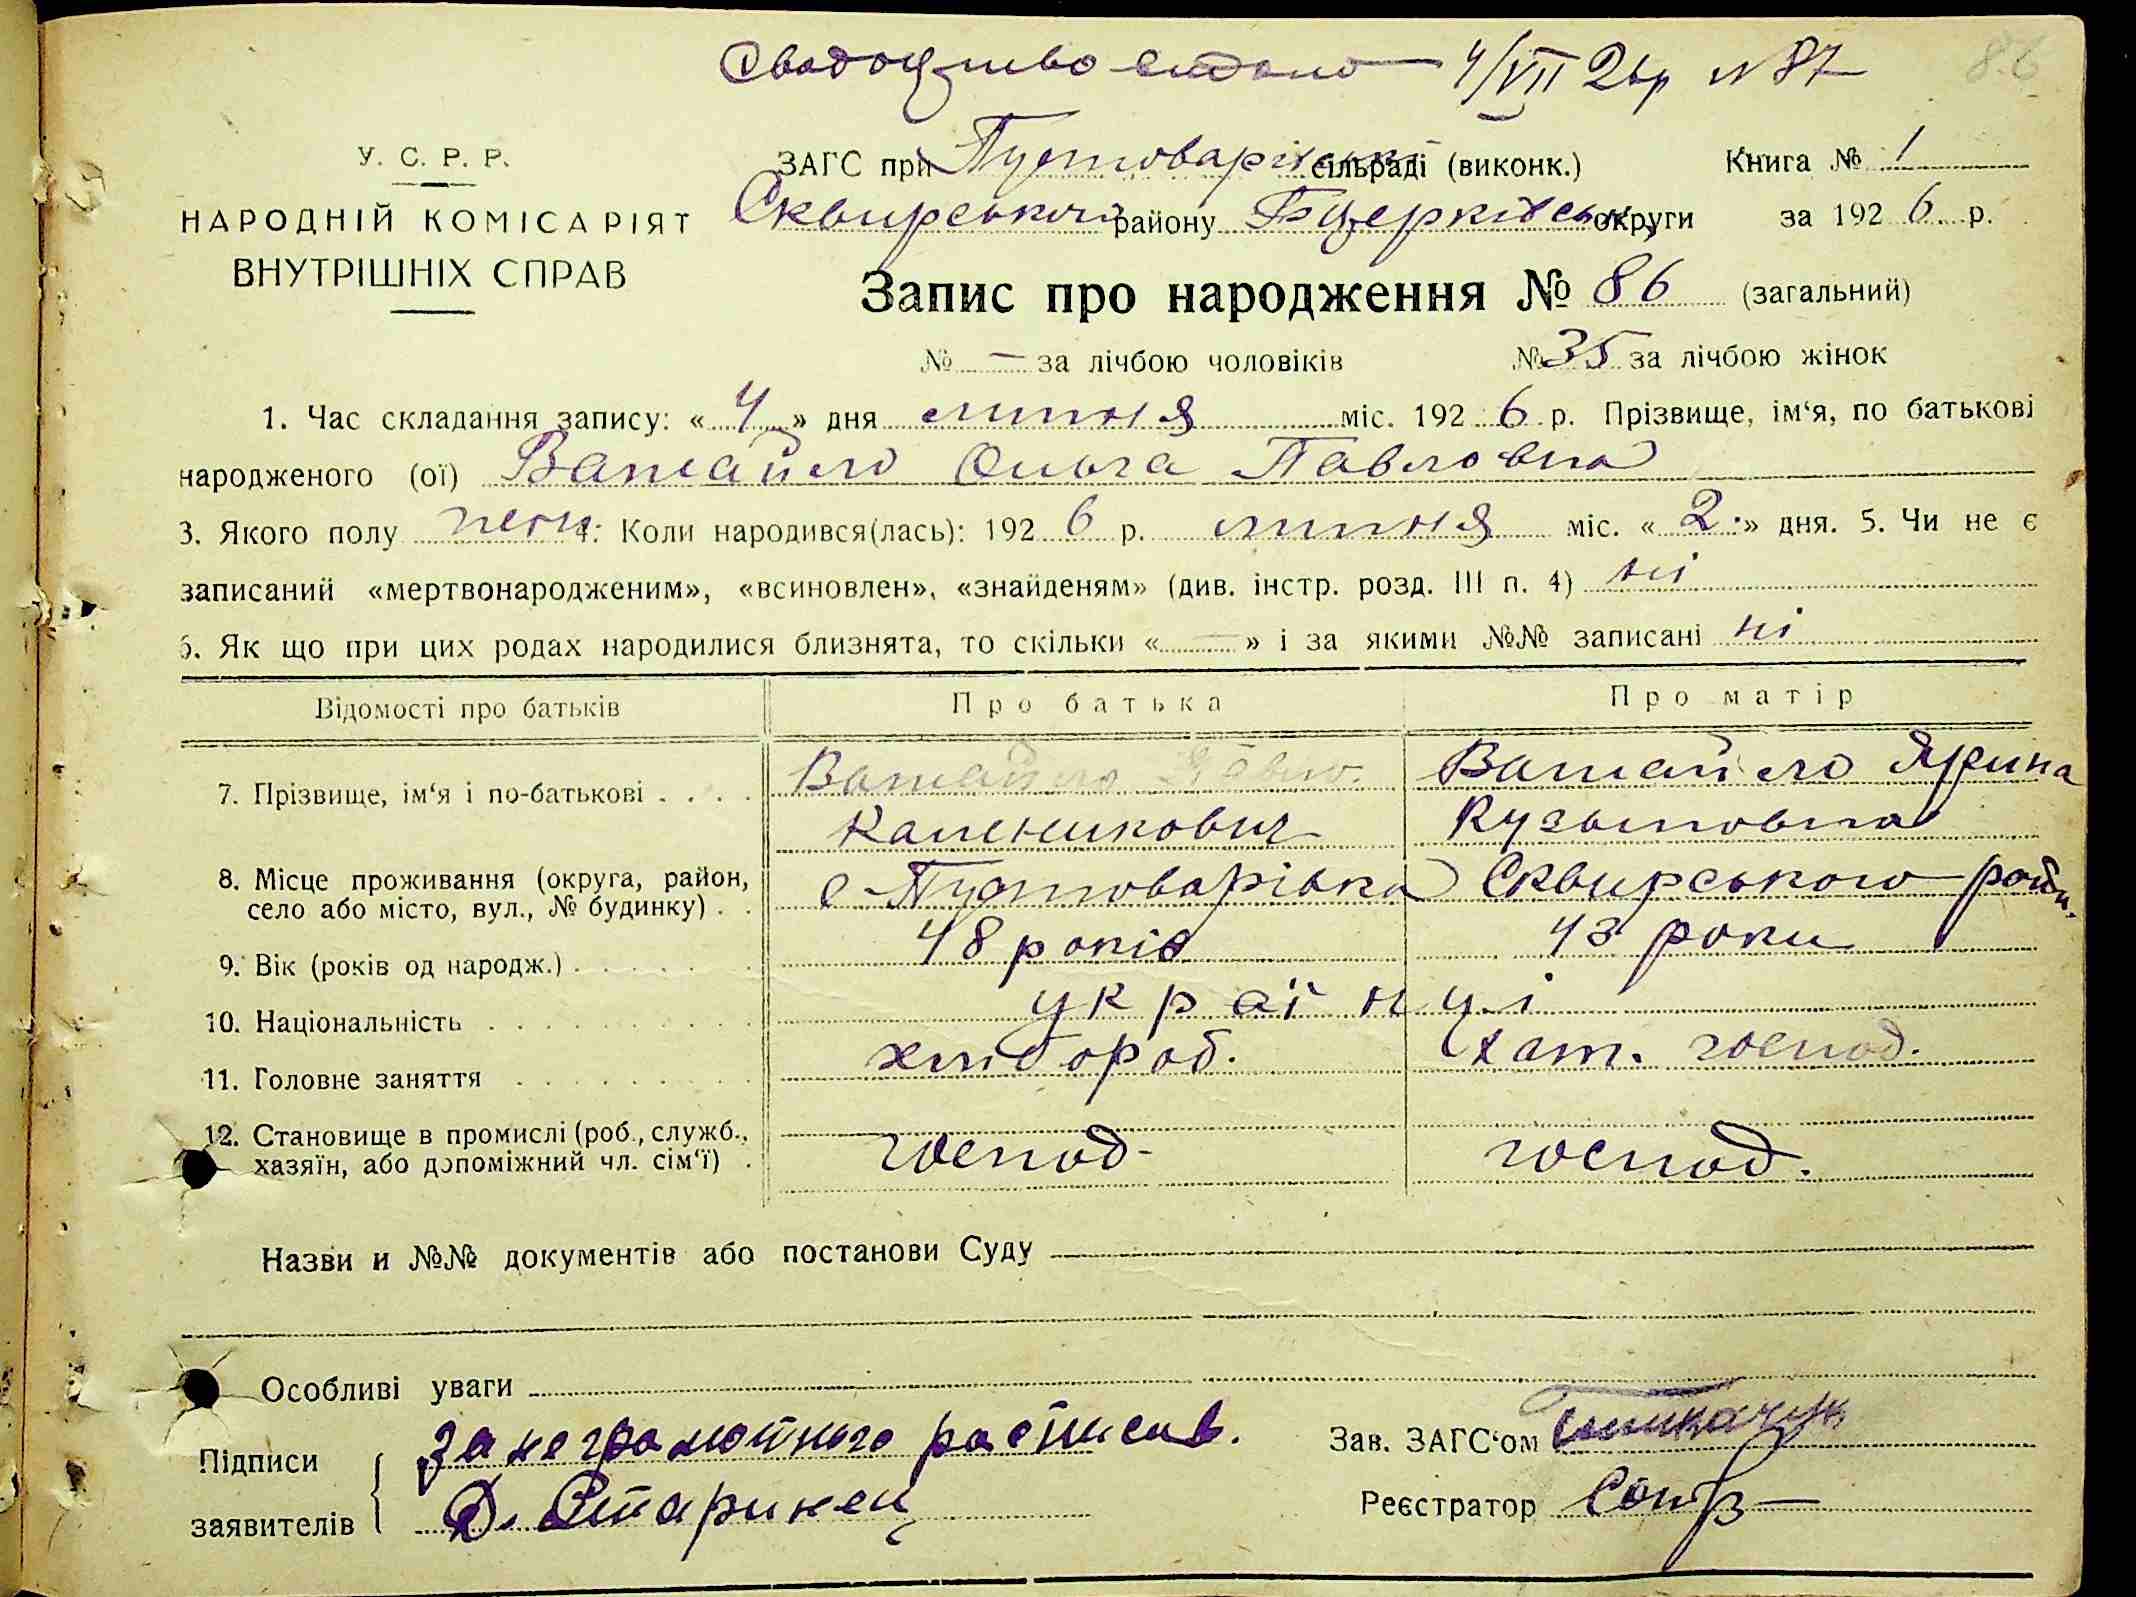 Свадоцтво видано 4/VII 26р N 87
86
У. С. Р. Р.
НАРОДНІЙ КОМІСАРІЯТ
ВНУТРІШНІХ СПРАВ
ЗАГС при Пустоварівськ. сільраді (виконк.) Книга № 1
Сквирського району Б Церківськ. округи за 1926 р.
Запис про народження № 86 (загальний)
№ — за лічбою чоловіків № 35 за лічбою жінок
1. Час складання запису: «4» дня липня міс. 1926 р. Прізвище, ім‘я, по батькові
народженого (ої) Ватайло Ольга Павловна
3. Якого полу жен. 4: Коли народився(лась): 1926 р. липня міс. «2» дня. 5. Чи не є
записаний «мертвонародженим», «всиновлен», «знайденям» (див. інстр. розд. III п. 4) ні
6. Як що при цих родах народилися близнята, то скільки «—» і за якими №№ записані ні
Відомості про батьків Про батька Про матір
7. Прізвище, ім‘я і по-батькові Ватайло Павло Каленикович Ватайло Ярина Кузьмовна
8. Місце проживання (округа, район,
село або місто, вул., № будинку) с Пустоварівка Сквирського райн.
9. Вік (років од народж.) 48 років 43 роки
10. Національність українці
11. Головне заняття хлібороб. хат. господ.
12. Становище в промислі (роб., служб.,
хазяїн, або допоміжний чл. сім‘ї) господ. господ.
Назви и №№ документів або постанови Суду
Особливі уваги
Підписи заявителів за неграмотного растисав.
Д. Старинец
Зав. ЗАГС‘ом
Реєстратор